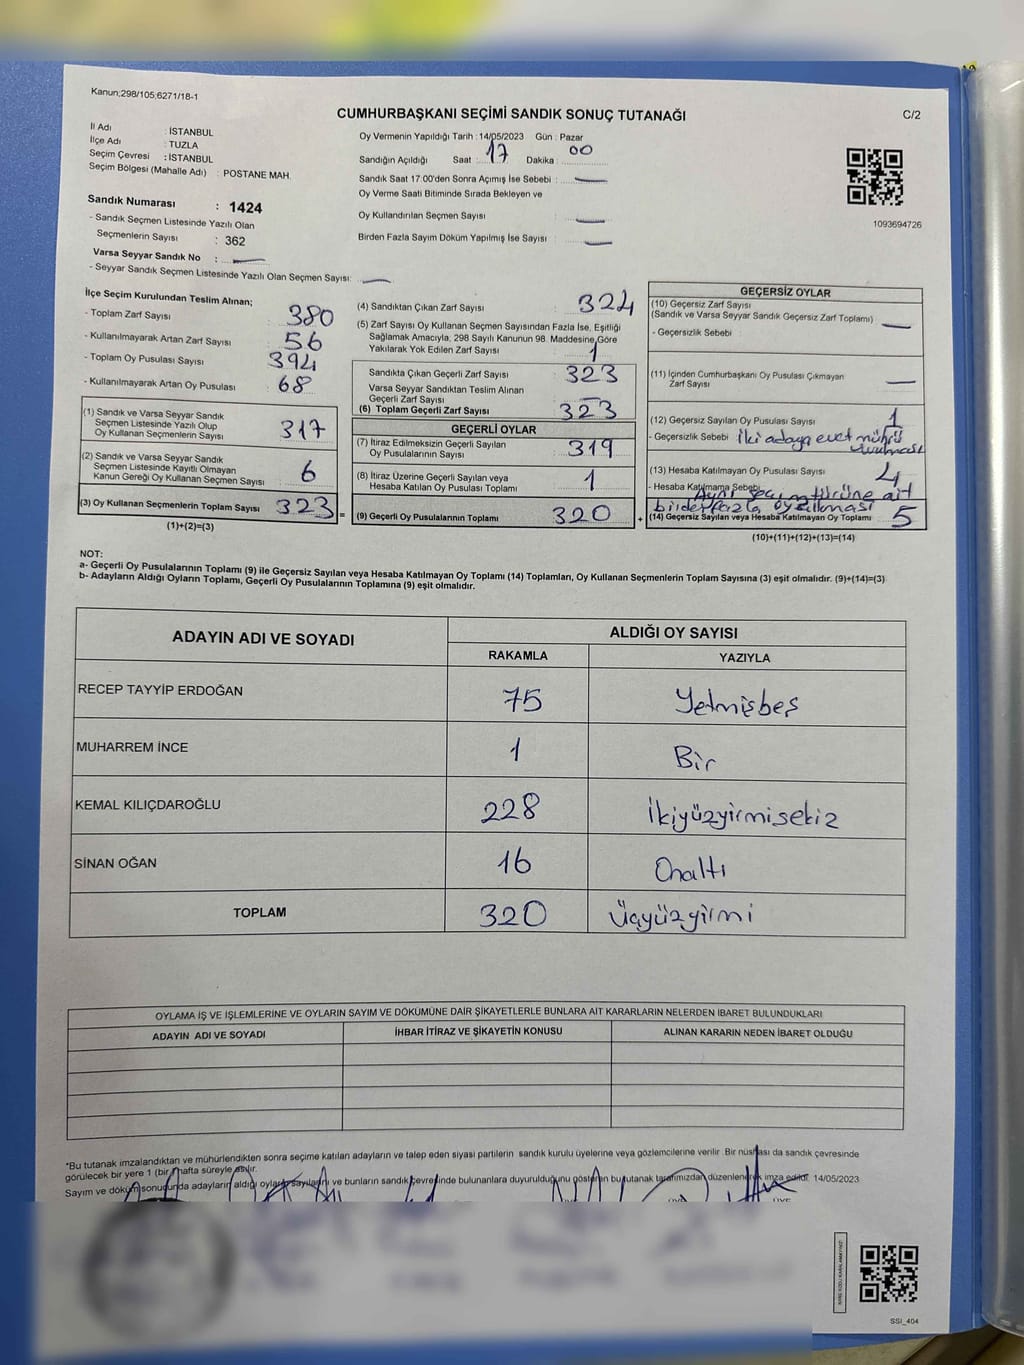 Kanun;298/105;6271/18-1
CUMHURBAŞKANI SEÇİMİ SANDIK SONUÇ TUTANAĞI
C/2
İl Adı : İSTANBUL
İlçe Adı : TUZLA
Seçim Çevresi : İSTANBUL
Seçim Bölgesi (Mahalle Adı) : POSTANE MAH.
Sandık Numarası : 1424
- Sandık Seçmen Listesinde Yazılı Olan
Seçmenlerin Sayısı : 362
Varsa Seyyar Sandık No : —
- Seyyar Sandık Seçmen Listesinde Yazılı Olan Seçmen Sayısı: —
Oy Vermenin Yapıldığı Tarih : 14/05/2023 Gün : Pazar
Sandığın Açıldığı Saat : 17 Dakika : 00
Sandık Saat 17:00'den Sonra Açımış İse Sebebi : —
Oy Verme Saati Bitiminde Sırada Bekleyen ve
Oy Kullandırılan Seçmen Sayısı : —
Birden Fazla Sayım Döküm Yapılmış İse Sayısı : —
1093694726
İlçe Seçim Kurulundan Teslim Alınan;
- Toplam Zarf Sayısı : 380
- Kullanılmayarak Artan Zarf Sayısı : 56
- Toplam Oy Pusulası Sayısı : 394
- Kullanılmayarak Artan Oy Pusulası : 68
(1) Sandık ve Varsa Seyyar Sandık
Seçmen Listesinde Yazılı Olup
Oy Kullanan Seçmenlerin Sayısı : 317
(2) Sandık ve Varsa Seyyar Sandık
Seçmen Listesinde Kayıtlı Olmayan
Kanun Gereği Oy Kullanan Seçmen Sayısı : 6
(3) Oy Kullanan Seçmenlerin Toplam Sayısı : 323 =
(1)+(2)=(3)
(4) Sandıktan Çıkan Zarf Sayısı : 324
(5) Zarf Sayısı Oy Kullanan Seçmen Sayısından Fazla İse, Eşitliği
Sağlamak Amacıyla, 298 Sayılı Kanunun 98. Maddesine Göre
Yakılarak Yok Edilen Zarf Sayısı : 1
Sandıkta Çıkan Geçerli Zarf Sayısı : 323
Varsa Seyyar Sandıktan Teslim Alınan
Geçerli Zarf Sayısı : —
(6) Toplam Geçerli Zarf Sayısı : 323
GEÇERLİ OYLAR
(7) İtiraz Edilmeksizin Geçerli Sayılan
Oy Pusulalarının Sayısı : 319
(8) İtiraz Üzerine Geçerli Sayılan veya
Hesaba Katılan Oy Pusulası Toplamı : 1
(9) Geçerli Oy Pusulalarının Toplamı : 320 +
GEÇERSİZ OYLAR
(10) Geçersiz Zarf Sayısı
(Sandık ve Varsa Seyyar Sandık Geçersiz Zarf Toplamı) : —
- Geçersizlik Sebebi :
(11) İçinden Cumhurbaşkanı Oy Pusulası Çıkmayan
Zarf Sayısı : —
(12) Geçersiz Sayılan Oy Pusulası Sayısı : 1
- Geçersizlik Sebebi : İki adaya evet mührü
vurulması
(13) Hesaba Katılmayan Oy Pusulası Sayısı : 4
- Hesaba Katılmama Sebebi : Aynı seçim türüne ait
birden fazla oy
(14) Geçersiz Sayılan veya Hesaba Katılmayan Oy Toplamı : 5
(10)+(11)+(12)+(13)=(14)
NOT:
a- Geçerli Oy Pusulalarının Toplamı (9) ile Geçersiz Sayılan veya Hesaba Katılmayan Oy Toplamı (14) Toplamları, Oy Kullanan Seçmenlerin Toplam Sayısına (3) eşit olmalıdır. (9)+(14)=(3)
b- Adayların Aldığı Oyların Toplamı, Geçerli Oy Pusulalarının Toplamına (9) eşit olmalıdır.
ADAYIN ADI VE SOYADI
ALDIĞI OY SAYISI
RAKAMLA YAZIYLA
RECEP TAYYİP ERDOĞAN 75 Yetmişbeş
MUHARREM İNCE 1 Bir
KEMAL KILIÇDAROĞLU 228 İkiyüzyirmisekiz
SİNAN OĞAN 16 Onaltı
TOPLAM 320 Üçyüzyirmi
OYLAMA İŞ VE İŞLEMLERİNE VE OYLARIN SAYIM VE DÖKÜMÜNE DAİR ŞİKAYETLERLE BUNLARA AİT KARARLARIN NELERDEN İBARET BULUNDUKLARI
ADAYIN ADI VE SOYADI İHBAR İTİRAZ VE ŞİKAYETİN KONUSU ALINAN KARARIN NEDEN İBARET OLDUĞU
*Bu tutanak imzalandıktan ve mühürlendikten sonra seçime katılan adayların ve talep eden siyasi partilerin sandık kurulu üyelerine veya gözlemcilerine verilir. Bir nüshası da sandık çevresinde
görülecek bir yere 1 (bir) hafta süreyle asılır.
Sayım ve döküm sonucunda adayların aldığı oyların sayılarını ve bunların sandık çevresinde bulunanlara duyurulduğunu gösteren bu tutanak tarafımızdan düzenlenerek imza edildi. 14/05/2023
SSI_404